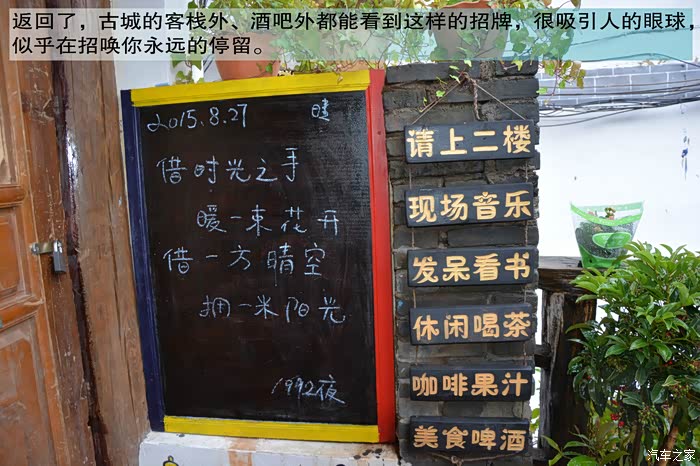 返回了，古城的客栈外、酒吧外都能看到这样的招牌，很吸引人的眼球，
似乎在招唤你永远的停留。
2015.8.27 晴
借时光之手
暖一束花开
借一方晴空
拥一米阳光
1992夜
请上二楼
现场音乐
发呆看书
休闲喝茶
咖啡果汁
美食啤酒
汽车之家